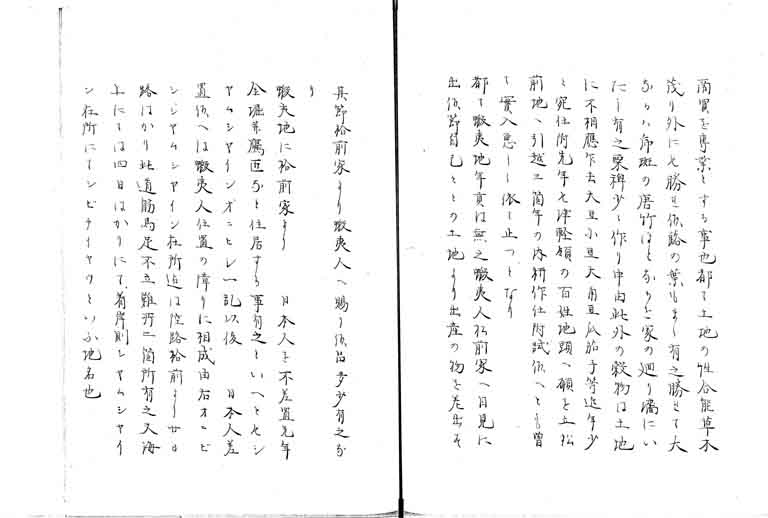 商買を専業とする事也都て土地の性合能草木
茂り外にも勝れ依路の葉もよく有之勝れて大
なるハ斑の唐竹ほとなりと家の廻り端にい
たし有之粟稗少々作り申由此外の穀物は土地
に不相應乍去大豆小豆大角豆瓜茄子等近年少
々宛仕附先年も津軽領の百姓地頭へ願を上松
前地へ引越二三箇年の内耕作仕附試候へとも曽
て實入悪しく依し止つとなり
都て蝦夷地年貢は無之蝦夷人松前家へ目見に
出候節自己々々の土地より出産の物を差出す
其節松前家より蝦夷人へ賜り候品多少有之な
り
蝦夷地に松前家より 日本人を不差置先年
金堀等鷹匠なと住居する事有之といへともシ
ヤムシヤインオニヒシ一記以後 日本人差
置候へは蝦夷人住置の障りに相成由右オニビ
シシヤムシヤイン在所迄は陸路松前より廿日
路はかり此道筋馬足不立難所二箇所有之又海
上にては四日はかりにて着岸則シヤムシヤイ
ン在所にてシビチヤリといふ地名也